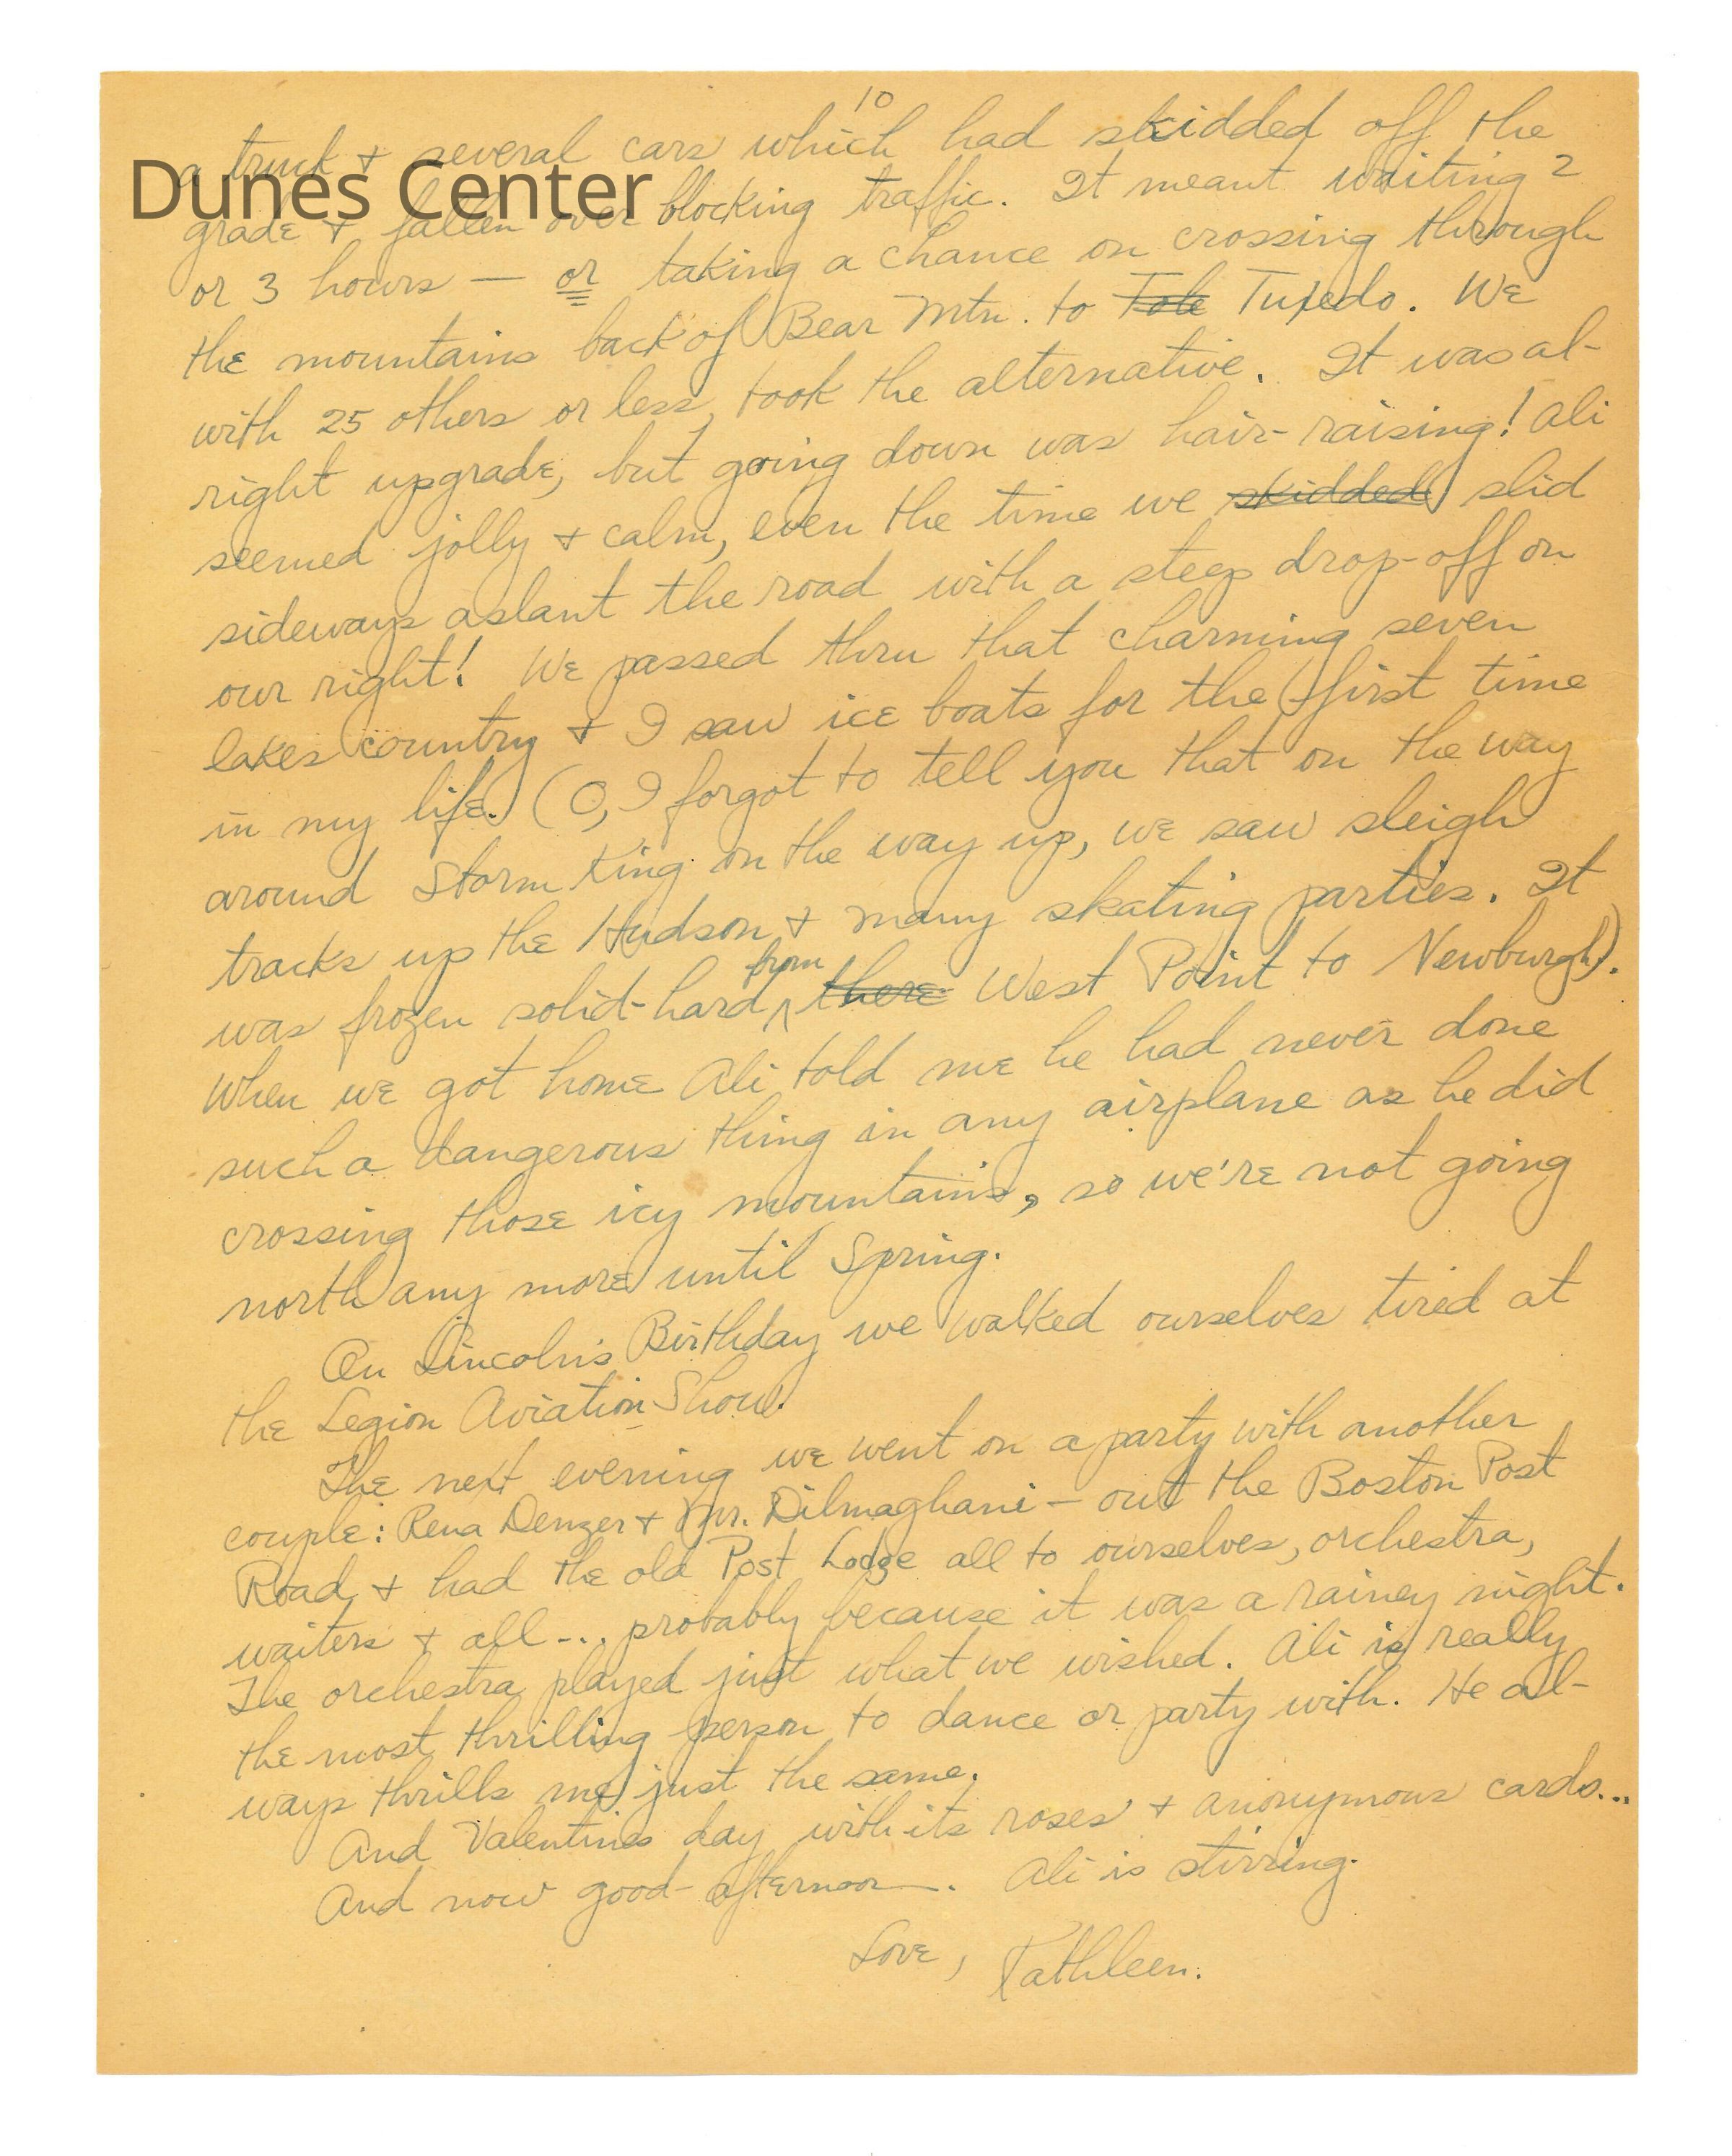 10
a truck & several cars which had skidded off the
Dunes Center
grade & fallen over blocking traffic. It meant waiting 2
or 3 hours — or taking a chance on crossing through
the mountains back of Bear Mtn. to Tole Tuxedo. We
with 25 others or less, took the alternative. It was al-
right upgrade, but going down was hair-raising! Ali
seemed jolly & calm, even the time we skidded slid
sideways aslant the road with a steep drop-off on
our right! We passed thru that charming seven
lakes country & I saw ice boats for the first time
in my life. (O, I forgot to tell you that on the way
around Storm King on the way up, we saw sleigh
tracks up the Hudson & many skating parties. It
was frozen solid-hard from there West Point to Newburgh).
When we got home Ali told me he had never done
such a dangerous thing in any airplane as he did
crossing those icy mountains, so we're not going
north any more until Spring.
On Lincoln's Birthday we walked ourselves tired at
the Legion Aviation Show.
The next evening we went on a party with another
couple: Rena Denzer & Mr. Dilmaghani — out the Boston Post
Road & had the old Post Lodge all to ourselves, orchestra,
waiters & all... probably because it was a rainey night.
The orchestra played just what we wished. Ali is really
the most thrilling person to dance or party with. He al-
ways thrills me just the same.
And Valentines day with its roses & anonymous cards...
And now good-afternoon. Ali is stirring.
Love, Kathleen.